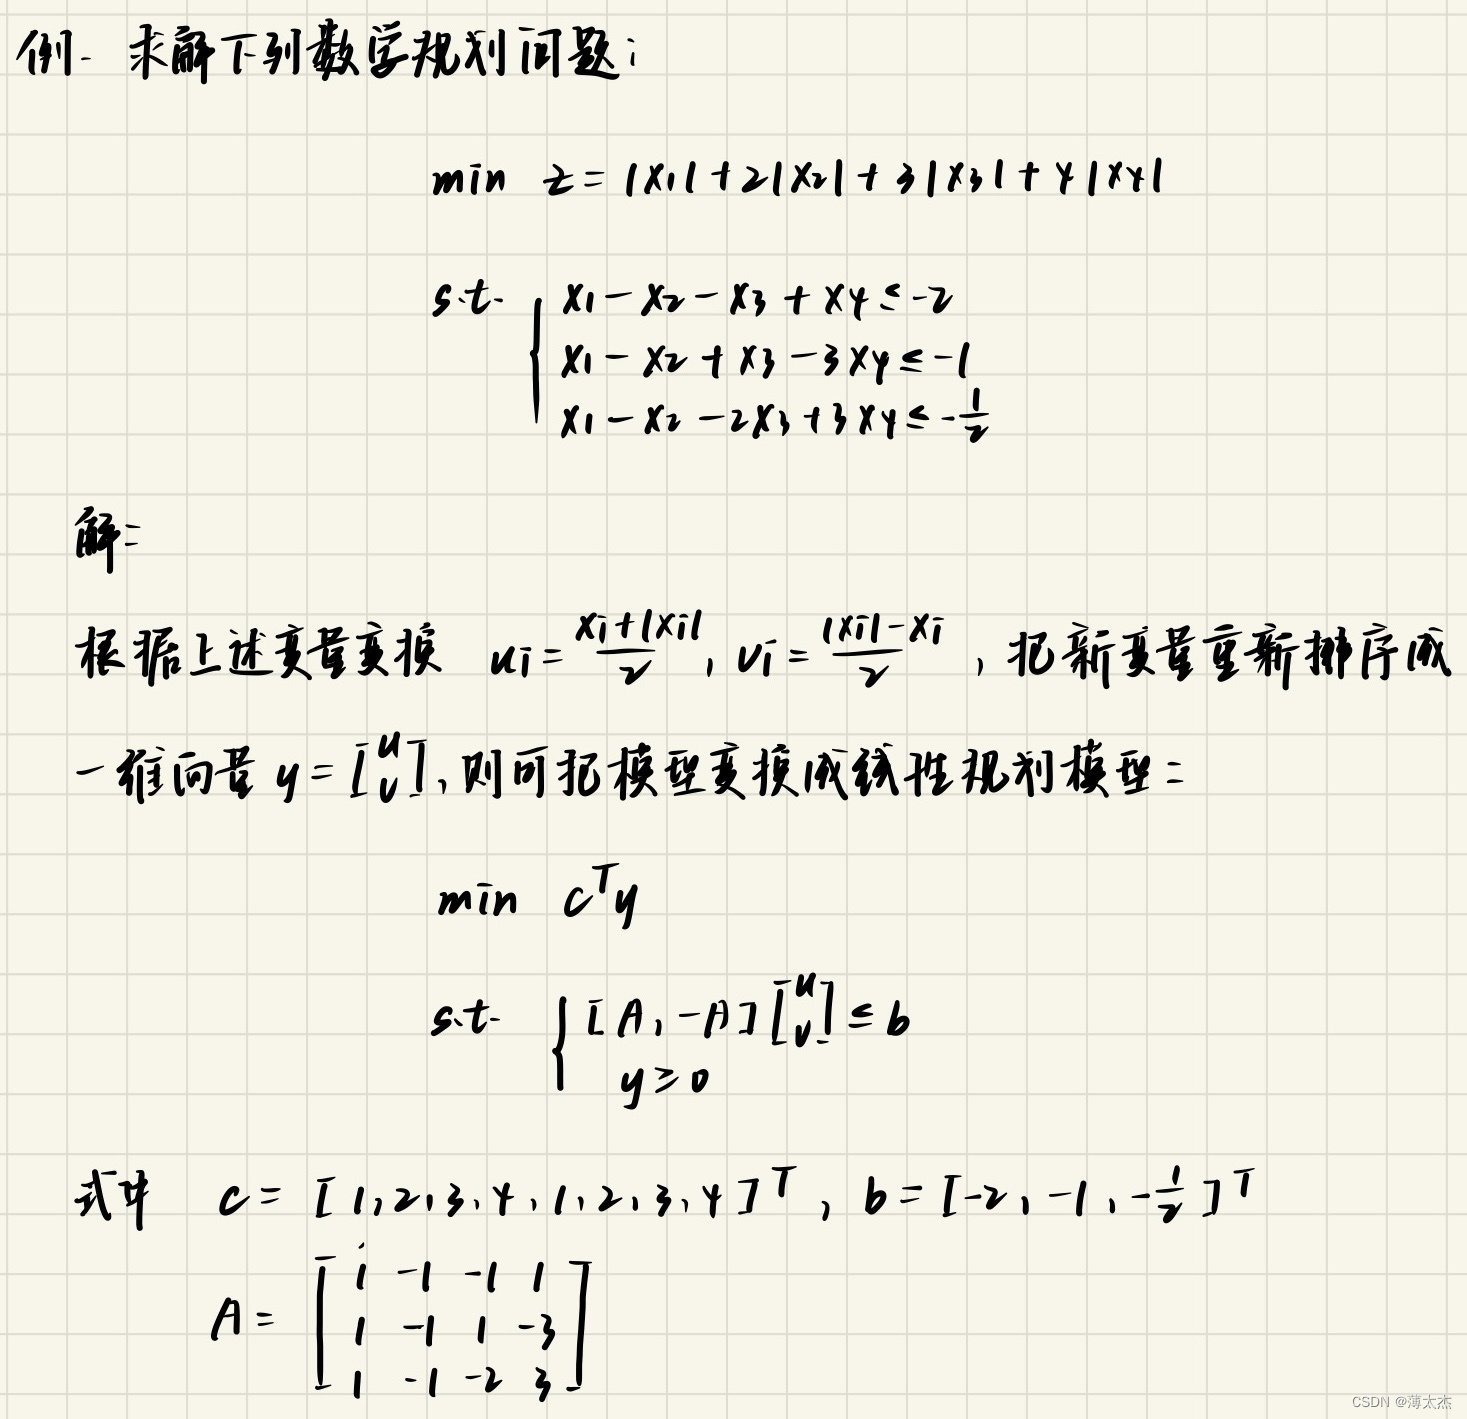 例. 求解下列数学规划问题:
min z = |x1| + 2|x2| + 3|x3| + 4|x4|
s.t. { x1 - x2 - x3 + x4 ≤ -2
x1 - x2 + x3 - 3x4 ≤ -1
x1 - x2 - 2x3 + 3x4 ≤ -1/2
解:
根据上述变量变换 ui = (xi+|xi|)/2, vi = (|xi|-xi)/2, 把新变量重新排序成
一维向量 y = [u v], 则可把模型变换成线性规划模型:
min c^T y
s.t. { [A, -A] [u v] ≤ b
y ≥ 0
式中 c = [1,2,3,4,1,2,3,4]^T, b = [-2, -1, -1/2]^T
A = [ 1 -1 -1 1
1 -1 1 -3
1 -1 -2 3 ]
CSDN @薄太杰